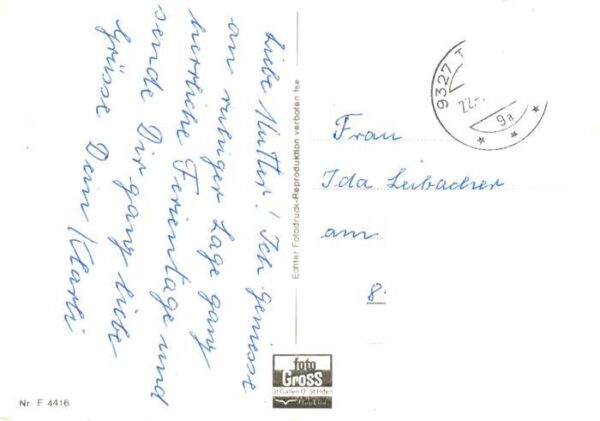 Liebe Mutter! Ich geniesse
an ruhiger Lage ganz
herrliche Ferientage und
sende Dir ganz liebe
Grüsse Dein Klärli
Echter Fotodruck-Reproduktion verboten
9327 T
22.
9a
Frau
Ida Leibacher
am
8.
foto
Gross
St Gallen O St Fiden
Nr F 4416